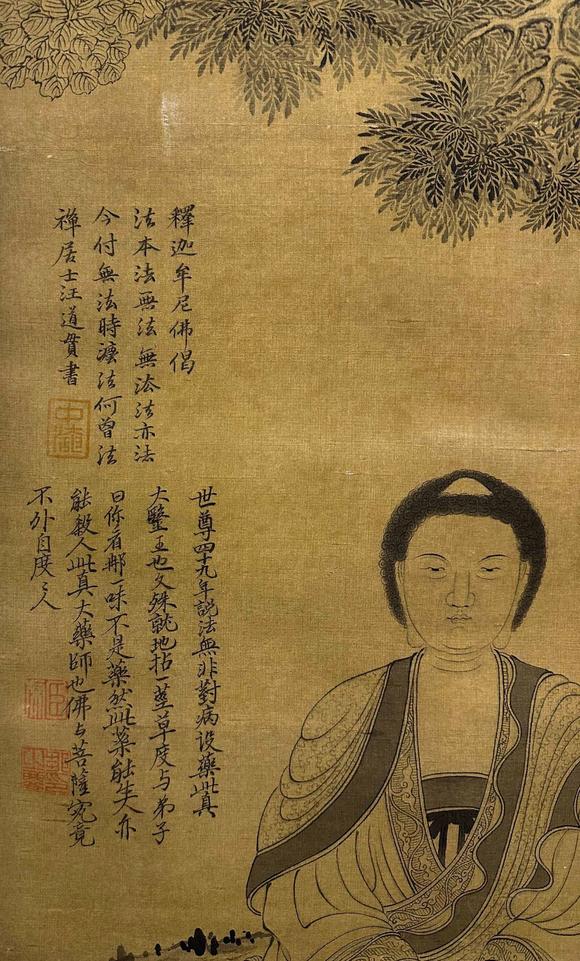 釋迦牟尼佛偈
法本法無法無法法亦法
今付無法時灋法何曾法
禅居士汪道貫書
世尊四十九年說法無非對病設藥此真
大毉王也文殊就地拈一莖草度与弟子
曰你看那一味不是藥然此藥能生人亦
能殺人此真大藥師也佛与菩薩究竟
不外自度度人